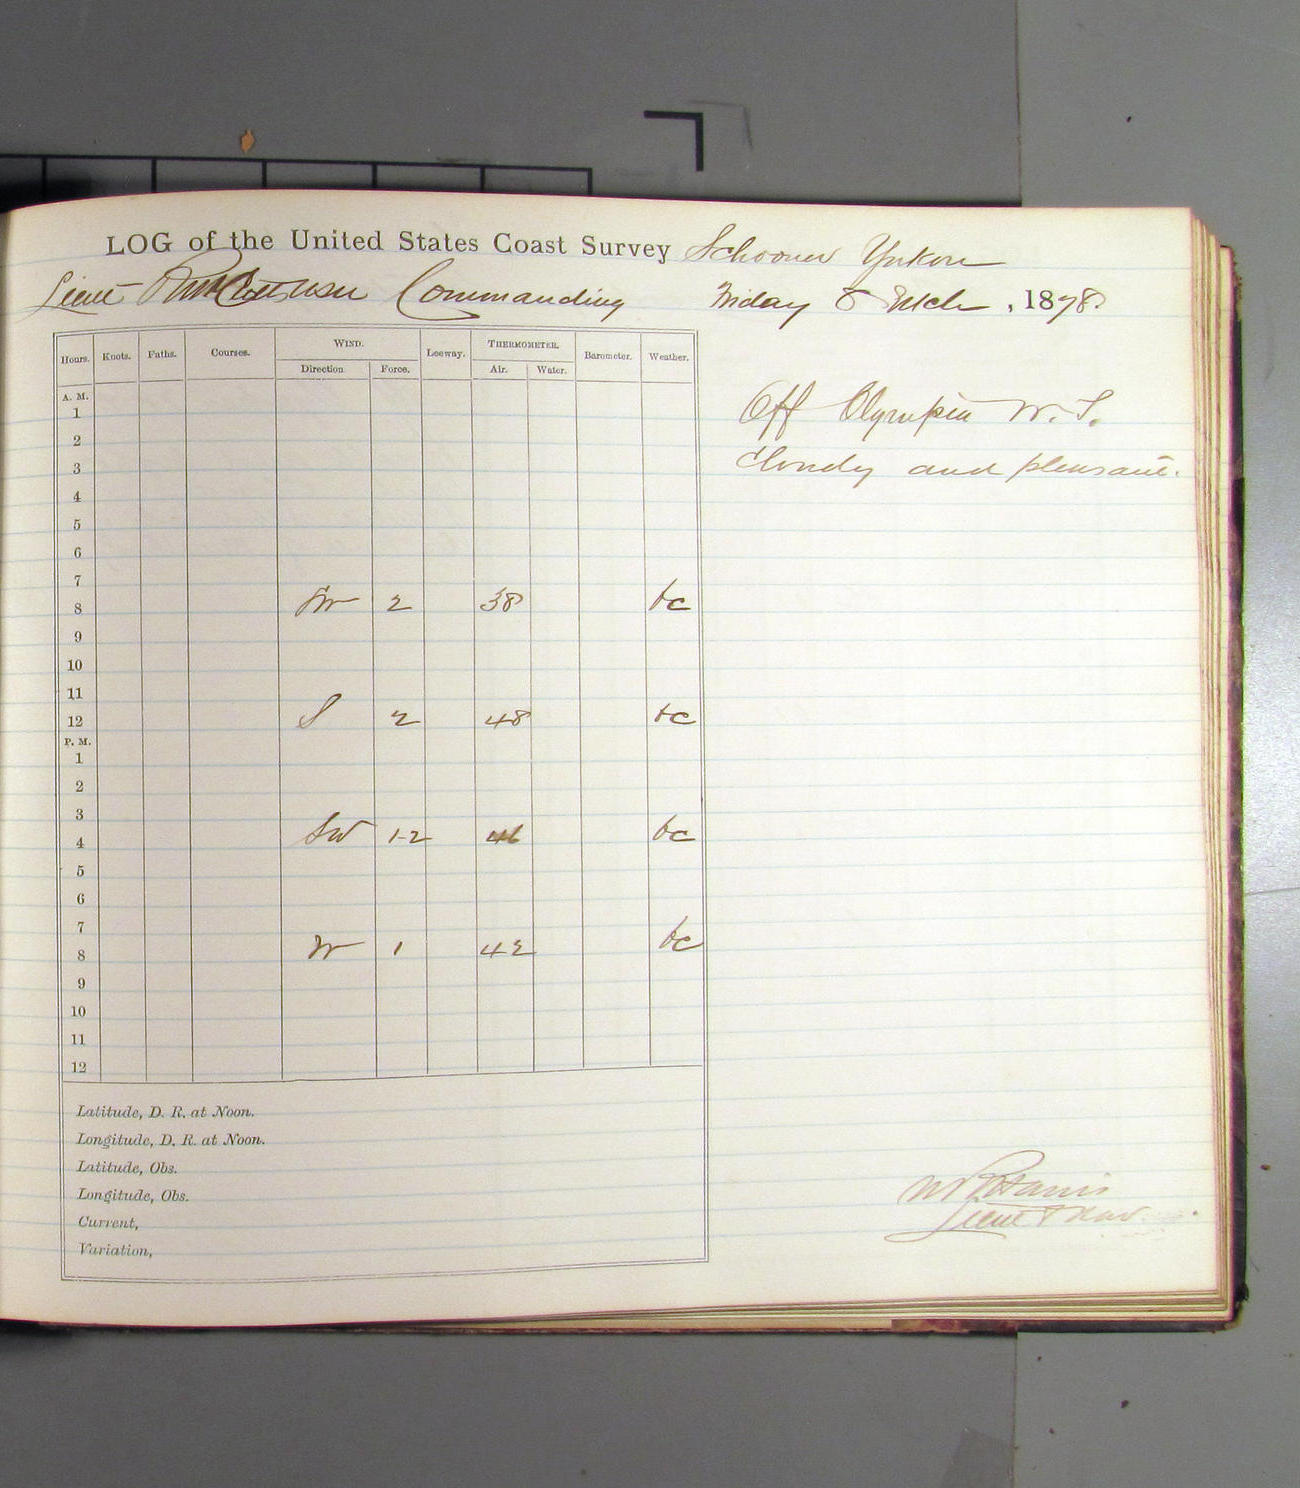 LOG of the United States Coast Survey Schooner Yukon
Lieut Commanding Friday 8 Mch , 1878.
Hours. Knots. Faths. Courses. WIND. Leeway. THERMOMETER. Barometer. Weather.
Direction. Force. Air. Water.
A. M.
1
Off Olympia W. T.
2
3
Cloudy and pleasant.
4
5
6
7
8 SW 2 38 bc
9
10
11
12 S 2 48 bc
P. M.
1
2
3
4 SW 1-2 46 bc
5
6
7
8 W 1 42 bc
9
10
11
12
Latitude, D. R. at Noon.
Longitude, D. R. at Noon.
Latitude, Obs.
Longitude, Obs.
Current,
Variation,
Harris
Lieut & Nav.